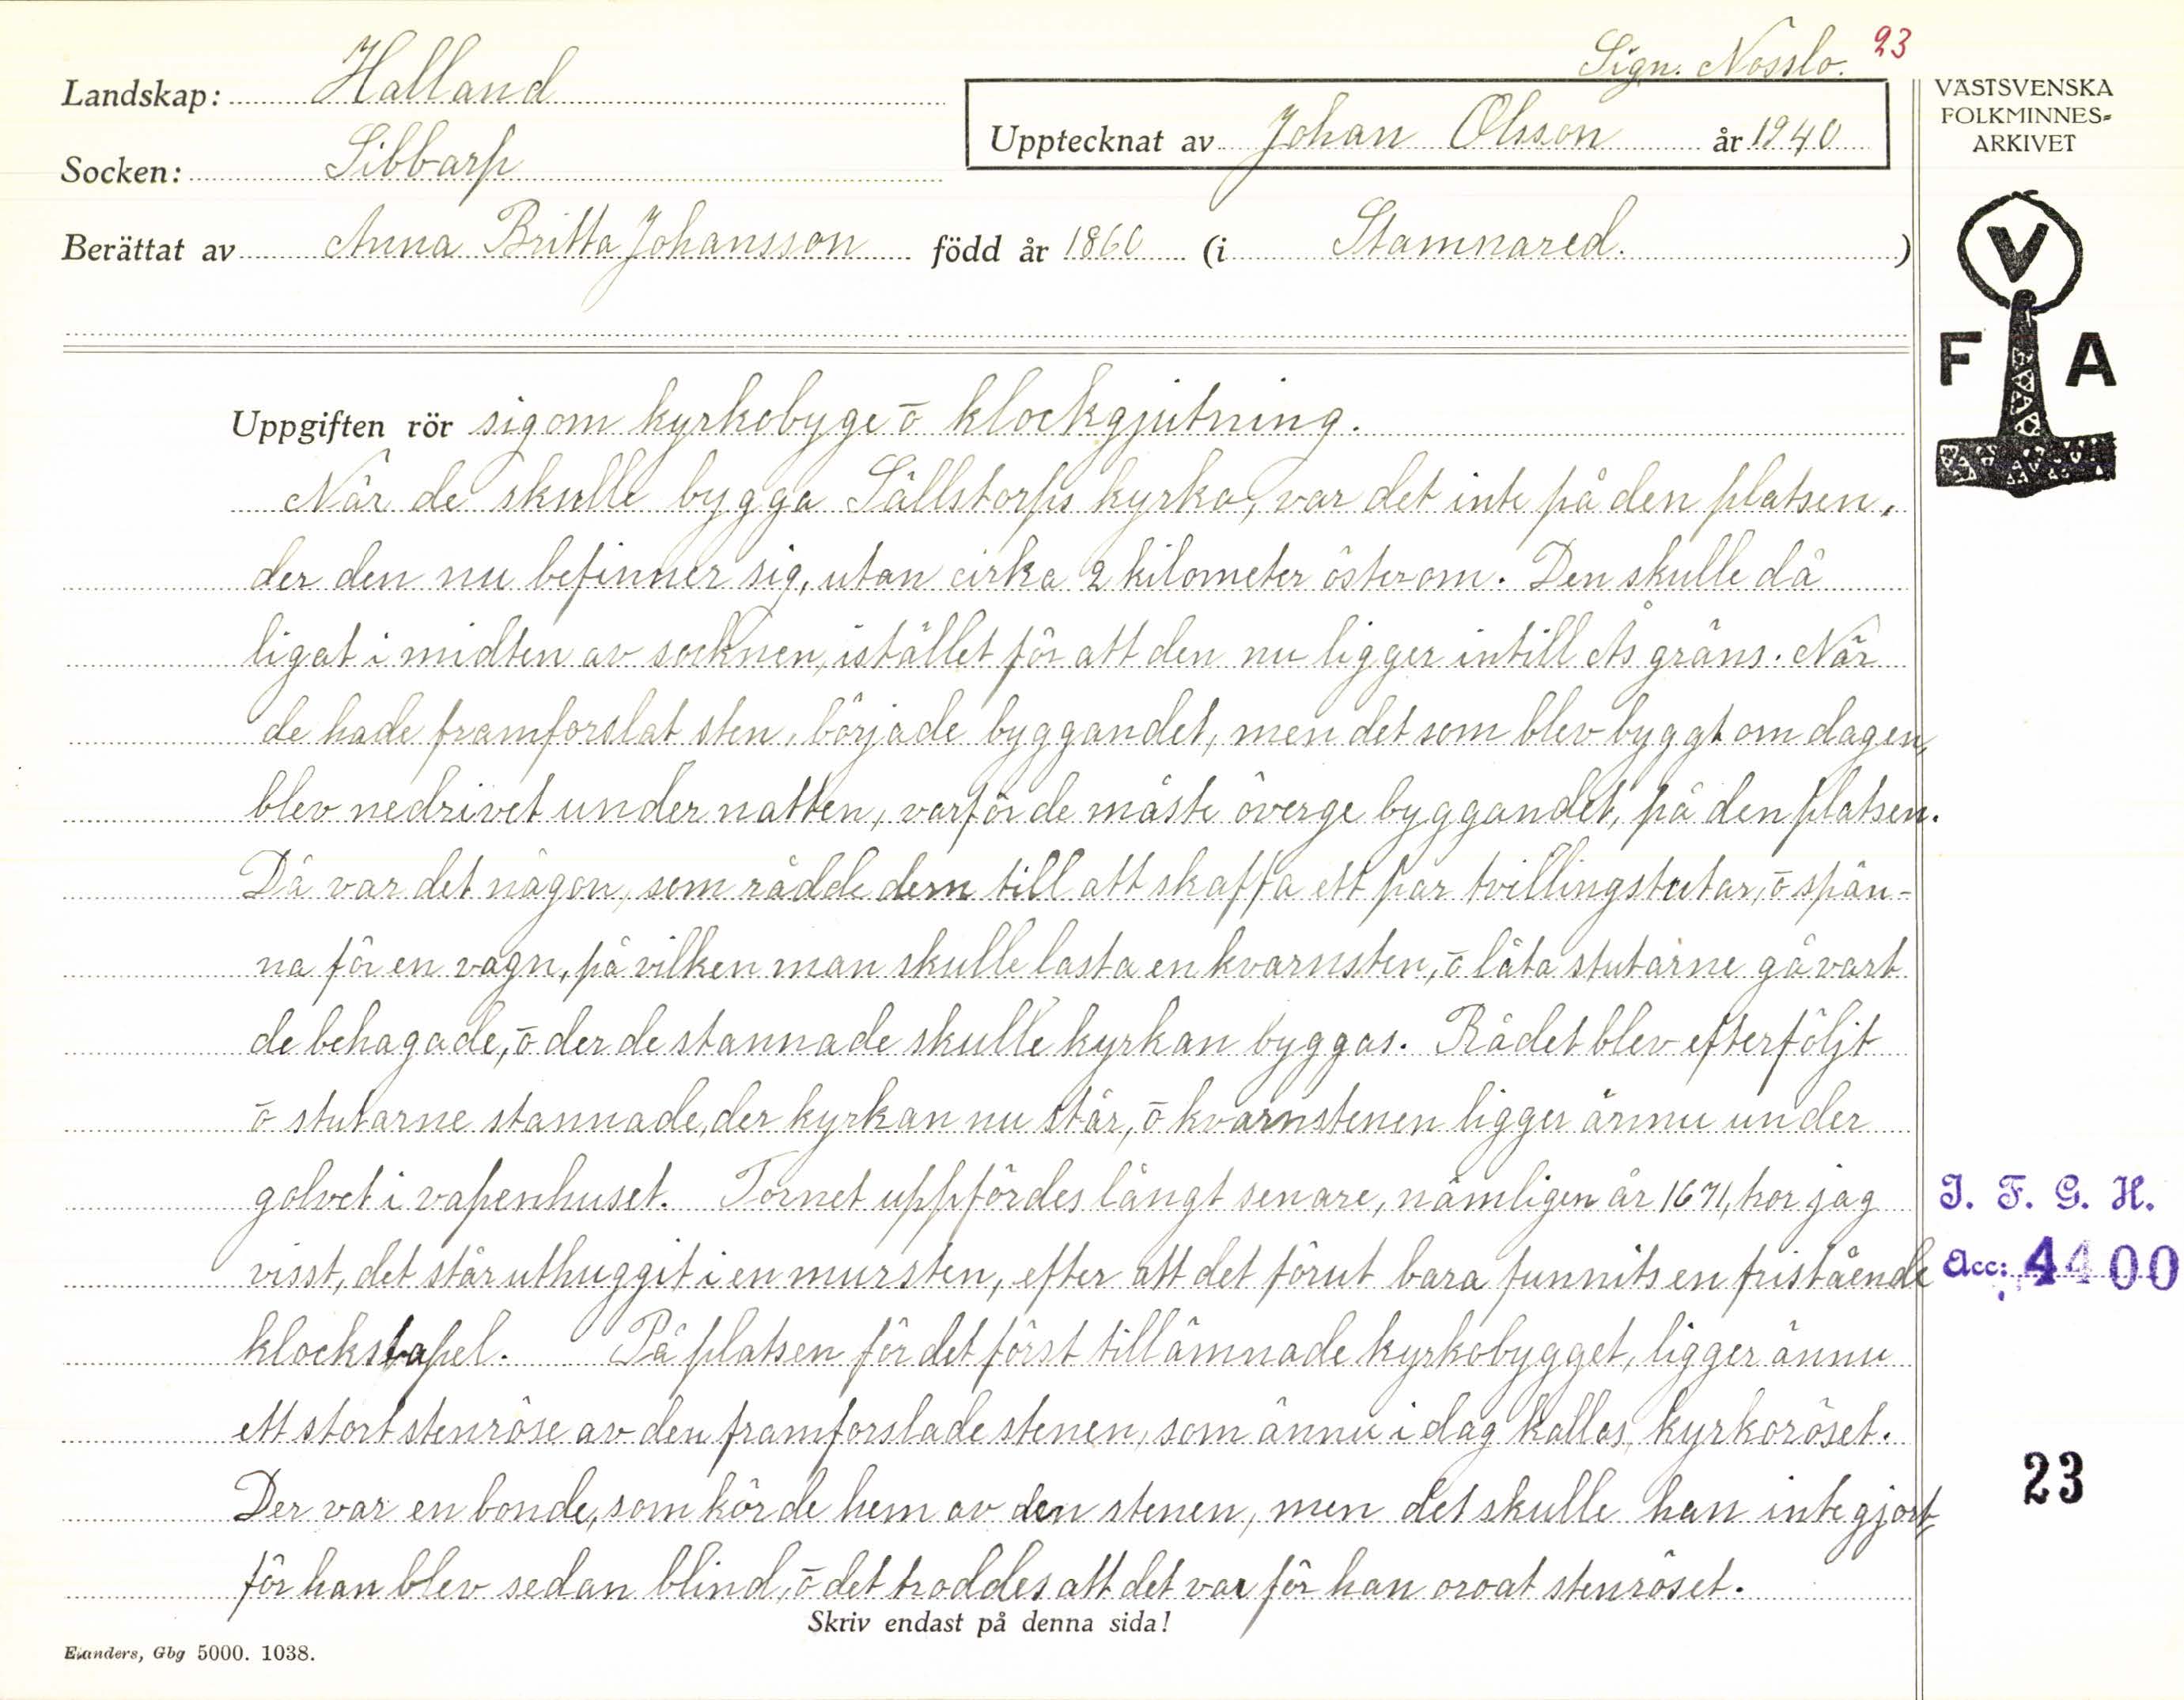 Sign. Nösslo. 23
Landskap: Halland
Upptecknat av Johan Olsson år 1940
Socken: Sibbarp
Berättat av Anna Britta Johansson född år 1860 (i Stamnared. )
VÄSTSVENSKA
FOLKMINNES=
ARKIVET
V
F A
Uppgiften rör sig om kyrkobyge ō klockgjutning.
När de skulle bygga Sällstorps kyrka, var det inte på den platsen,
der den nu befinner sig, utan cirka 2 kilometer österom. Den skulle då
ligat i midten av socknen, istället för att den nu ligger intill Ås gräns. När
de hade framforslat sten, började byggandet, men det som blev byggt om dagen,
blev nedrivet under natten, varför de måste överge byggandet, på den platsen.
Då var det någon, som rådde dem till att skaffa ett par tvillingstutar, ō spän-
na för en vagn, på vilken man skulle lasta en kvarnsten, ō låta stutarne gå vart
de behagade, ō der de stannade skulle kyrkan byggas. Rådet blev efterföljt
ō stutarne stannade, der kyrkan nu står, ō kvarnstenen ligger ännu under
golvet i vapenhuset. Tornet uppfördes långt senare, nämligen år 1671, tror jag
visst, det står uthuggit i en mursten, efter att det förut bara funnits en fristående
klockstapel. På platsen för det först tillämnade kyrkobygget, ligger ännu
ett stort stenröse av den framforslade stenen, som ännu i dag kallas, kyrkoröset.
Der var en bonde, som körde hem av den stenen, men det skulle han inte gjort,
för han blev sedan blind, ō det troddes att det var för han oroat stenröset.
I. F. G. H.
Acc: 4400
23
Skriv endast på denna sida!
Elanders, Gbg 5000. 1038.